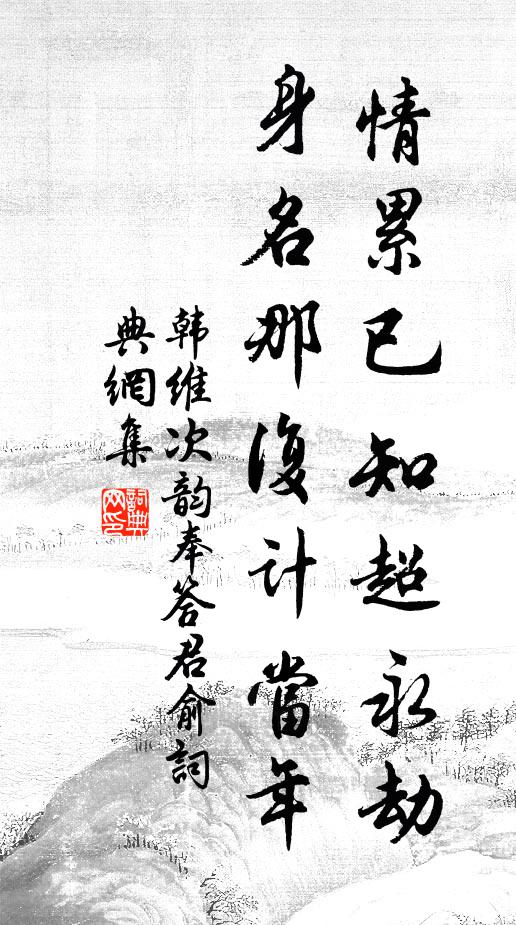 情累已知超永劫
身名那復计當年
韩维次韵奉答君俞詞
典網集
詞典网印